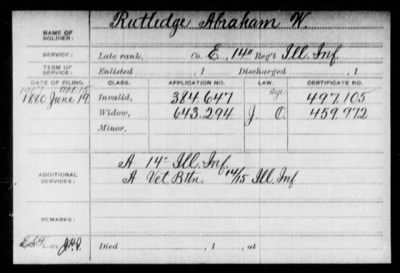 NAME OF SOLDIER: Rutledge Abraham W.
SERVICE: Late rank, Co. E, 14" Reg't Ill. Inf.
TERM OF SERVICE: Enlisted , 1 Discharged , 1
DATE OF FILING. CLASS. APPLICATION NO. LAW. CERTIFICATE NO.
1880 June 19 Invalid, 384.647 497.105
Widow, 643.294 J. O. 459.972
Minor,
ADDITIONAL SERVICES: A 14" Ill. Inf.
A Vet Bttn. 14/15 Ill. Inf
REMARKS:
Died , 1 , at